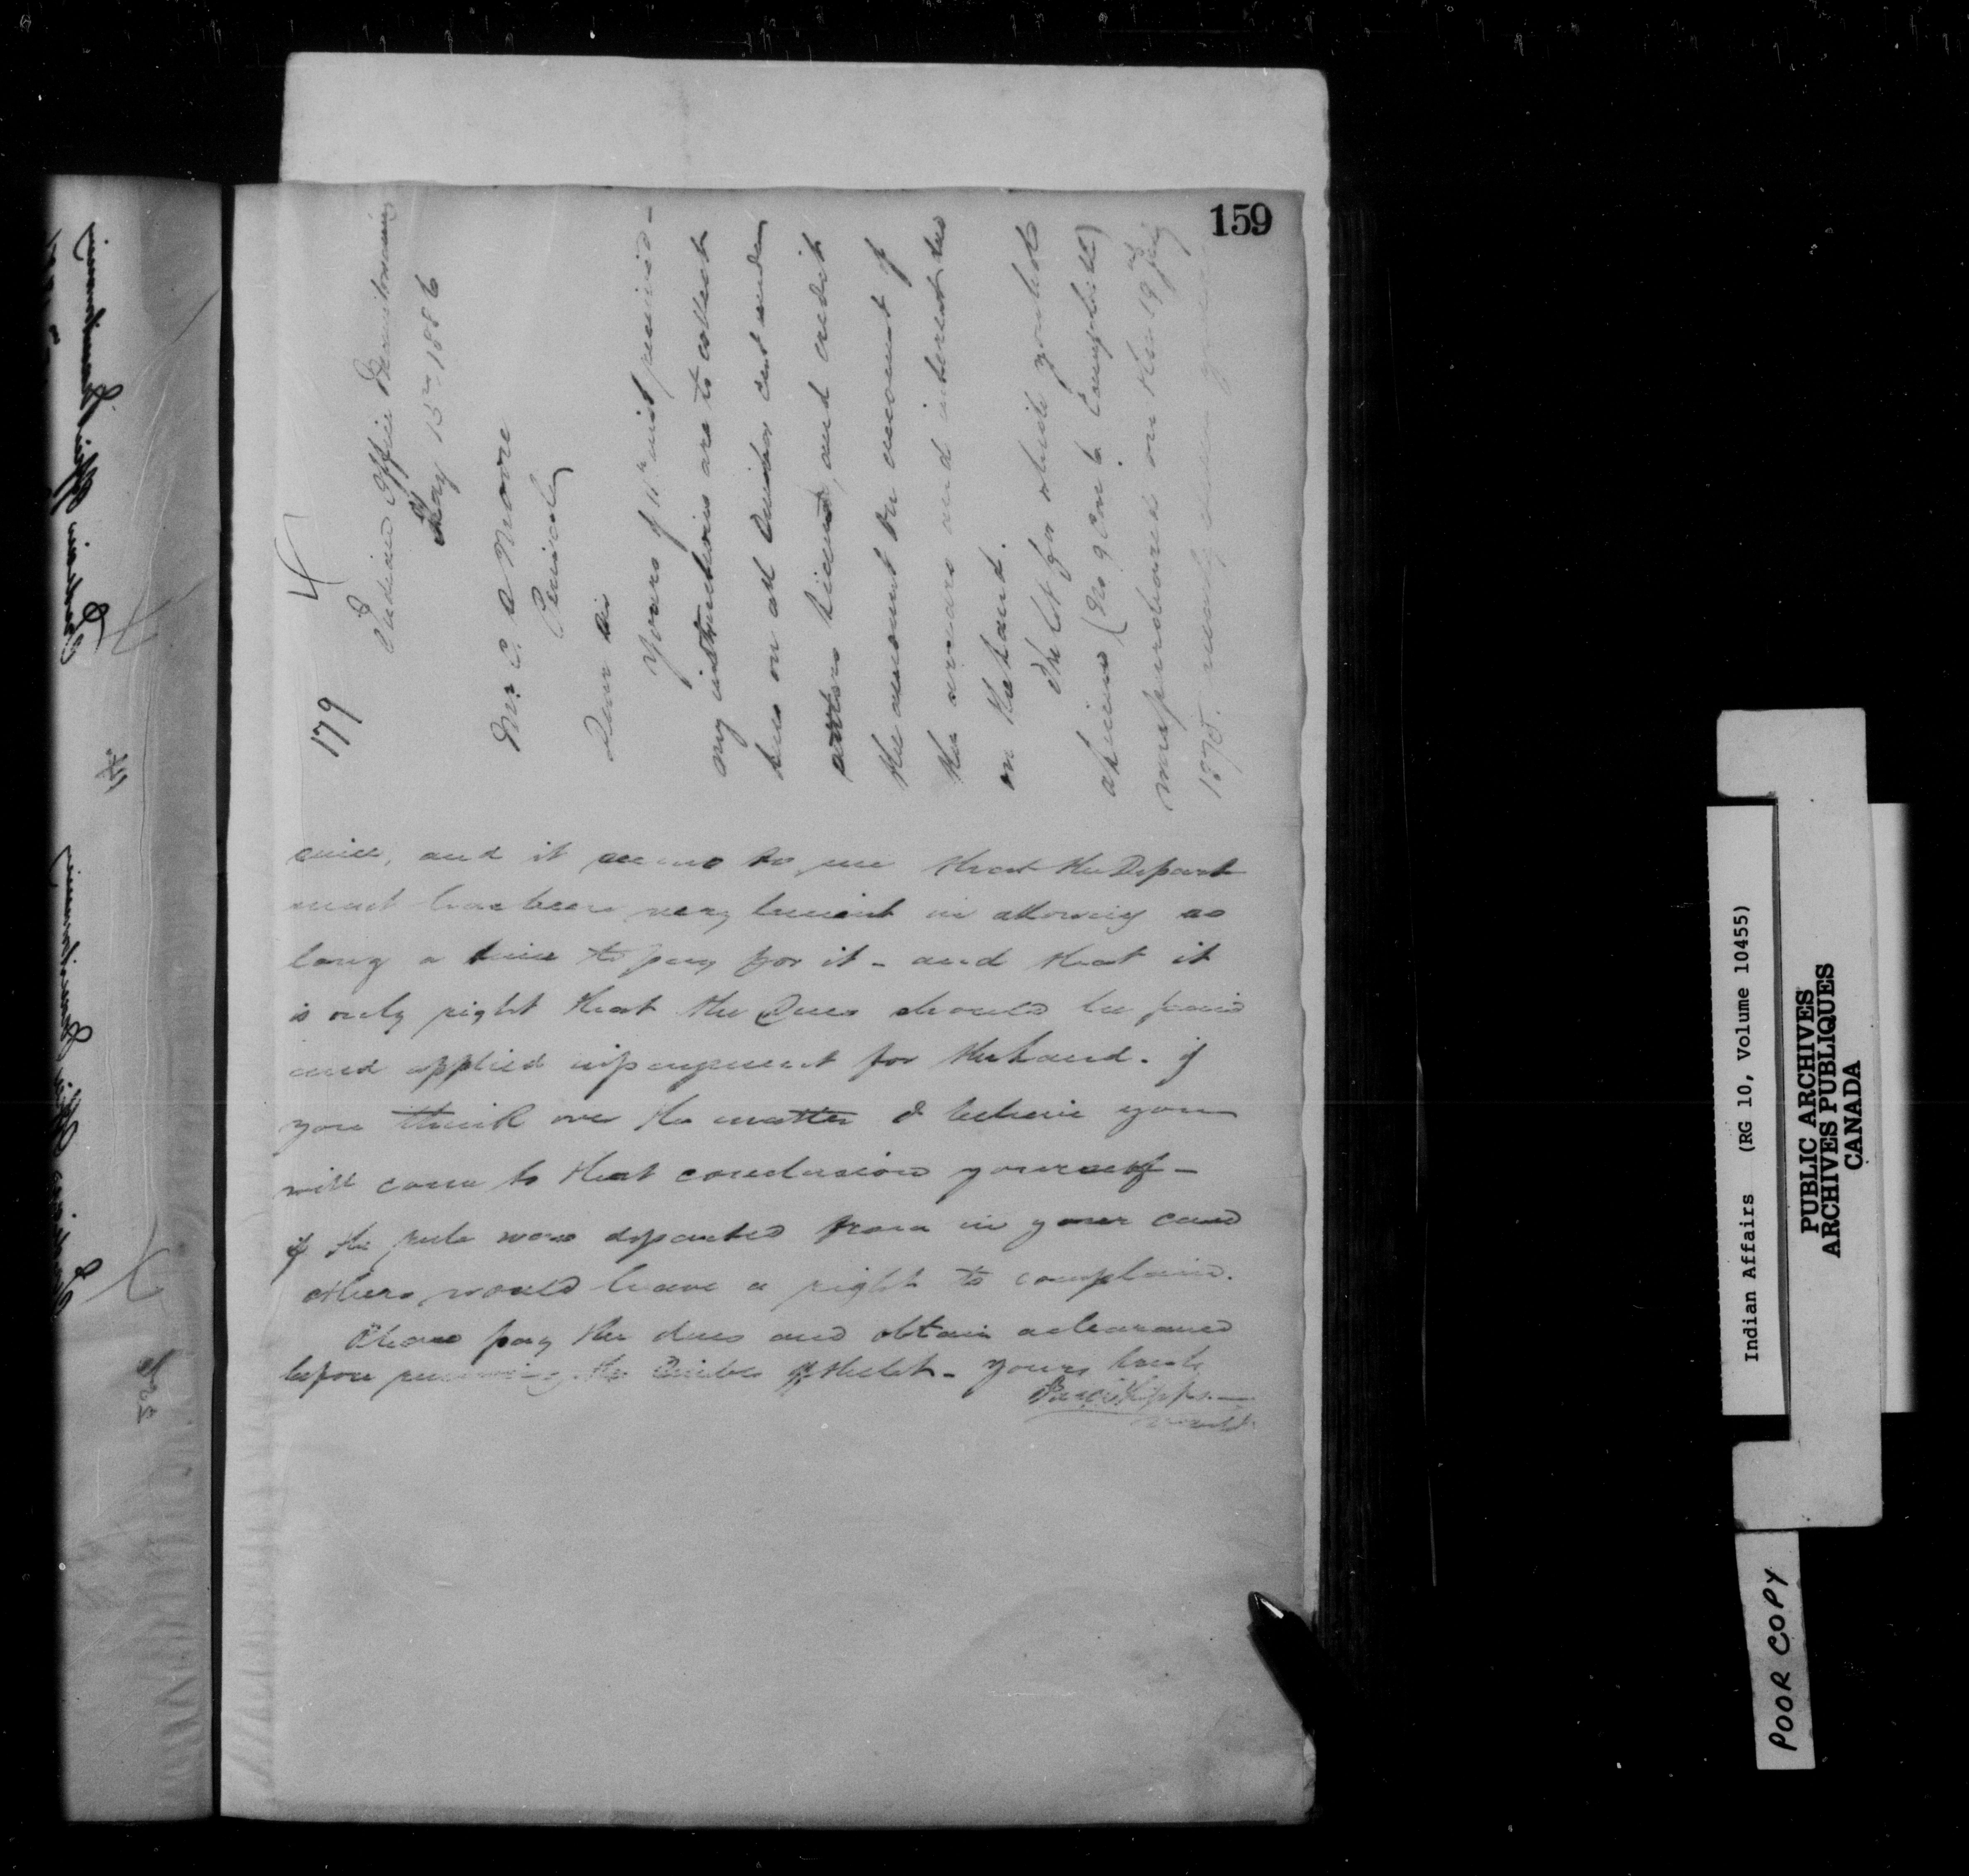 159
179
Indian Office Manitowaning
May 15th 1886
Mr C. A Moore
Dear Sir
Yours of 11th inst received -
my instructions are to collect
dues on all timber cut under
settlers license, and credit
the amount on account of
the arrears and interest due
on the land.
The lot for which you hold
a license (No 9 Con 6 Campbell)
was purchased on the 19
1875. nearly eleven years
since, and it seems to me that the Depart
ment has been very lenient in allowing so
long a time to pay for it - and that it
is only right that the Dues should be paid
and applied in payment for the land. if
you think over the matter I believe you
will come to that conclusion yourself -
if the rule was departed from in your case
others would have a right to complain.
Please pay the dues and obtain a clearance
before removing the timber off the lot - yours truly
Indian Affairs (RG 10, Volume 10455)
PUBLIC ARCHIVES
ARCHIVES PUBLIQUES
CANADA
POOR COPY